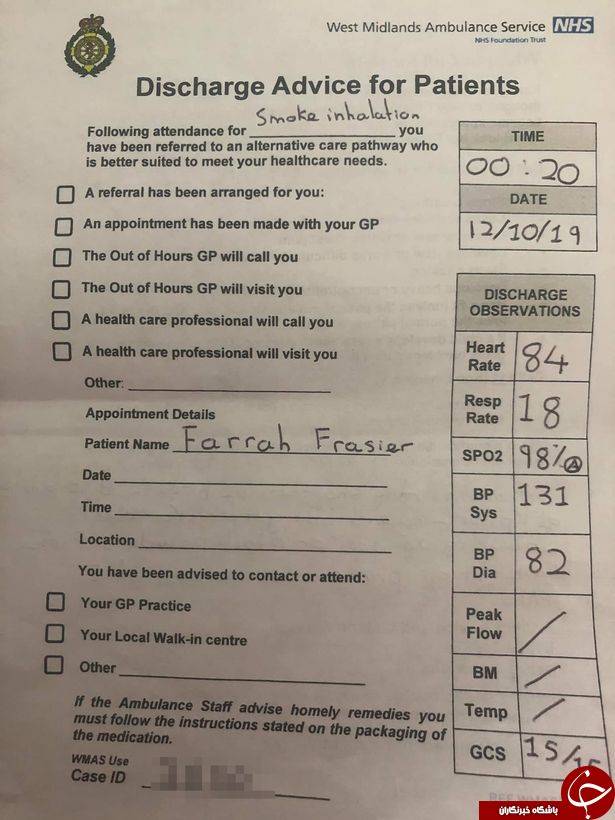 West Midlands Ambulance Service NHS
NHS Foundation Trust
Discharge Advice for Patients
Following attendance for Smoke inhalation you
have been referred to an alternative care pathway who
is better suited to meet your healthcare needs.
TIME
00:20
DATE
12/10/19
A referral has been arranged for you:
An appointment has been made with your GP
The Out of Hours GP will call you
The Out of Hours GP will visit you
A health care professional will call you
A health care professional will visit you
Other:
Appointment Details
Patient Name Farrah Frasier
Date
Time
Location
You have been advised to contact or attend:
Your GP Practice
Your Local Walk-in centre
Other
If the Ambulance Staff advise homely remedies you
must follow the instructions stated on the packaging of
the medication.
WMAS Use
Case ID
DISCHARGE
OBSERVATIONS
Heart
Rate 84
Resp
Rate 18
SPO2 98% A
BP
Sys 131
BP
Dia 82
Peak
Flow /
BM /
Temp /
GCS 15/15
باشگاه خبرنگاران